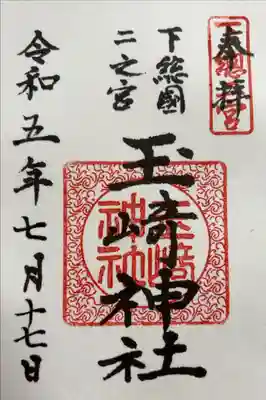 奉拝
下総國
二之宮
玉﨑神社
令和五年七月十七日